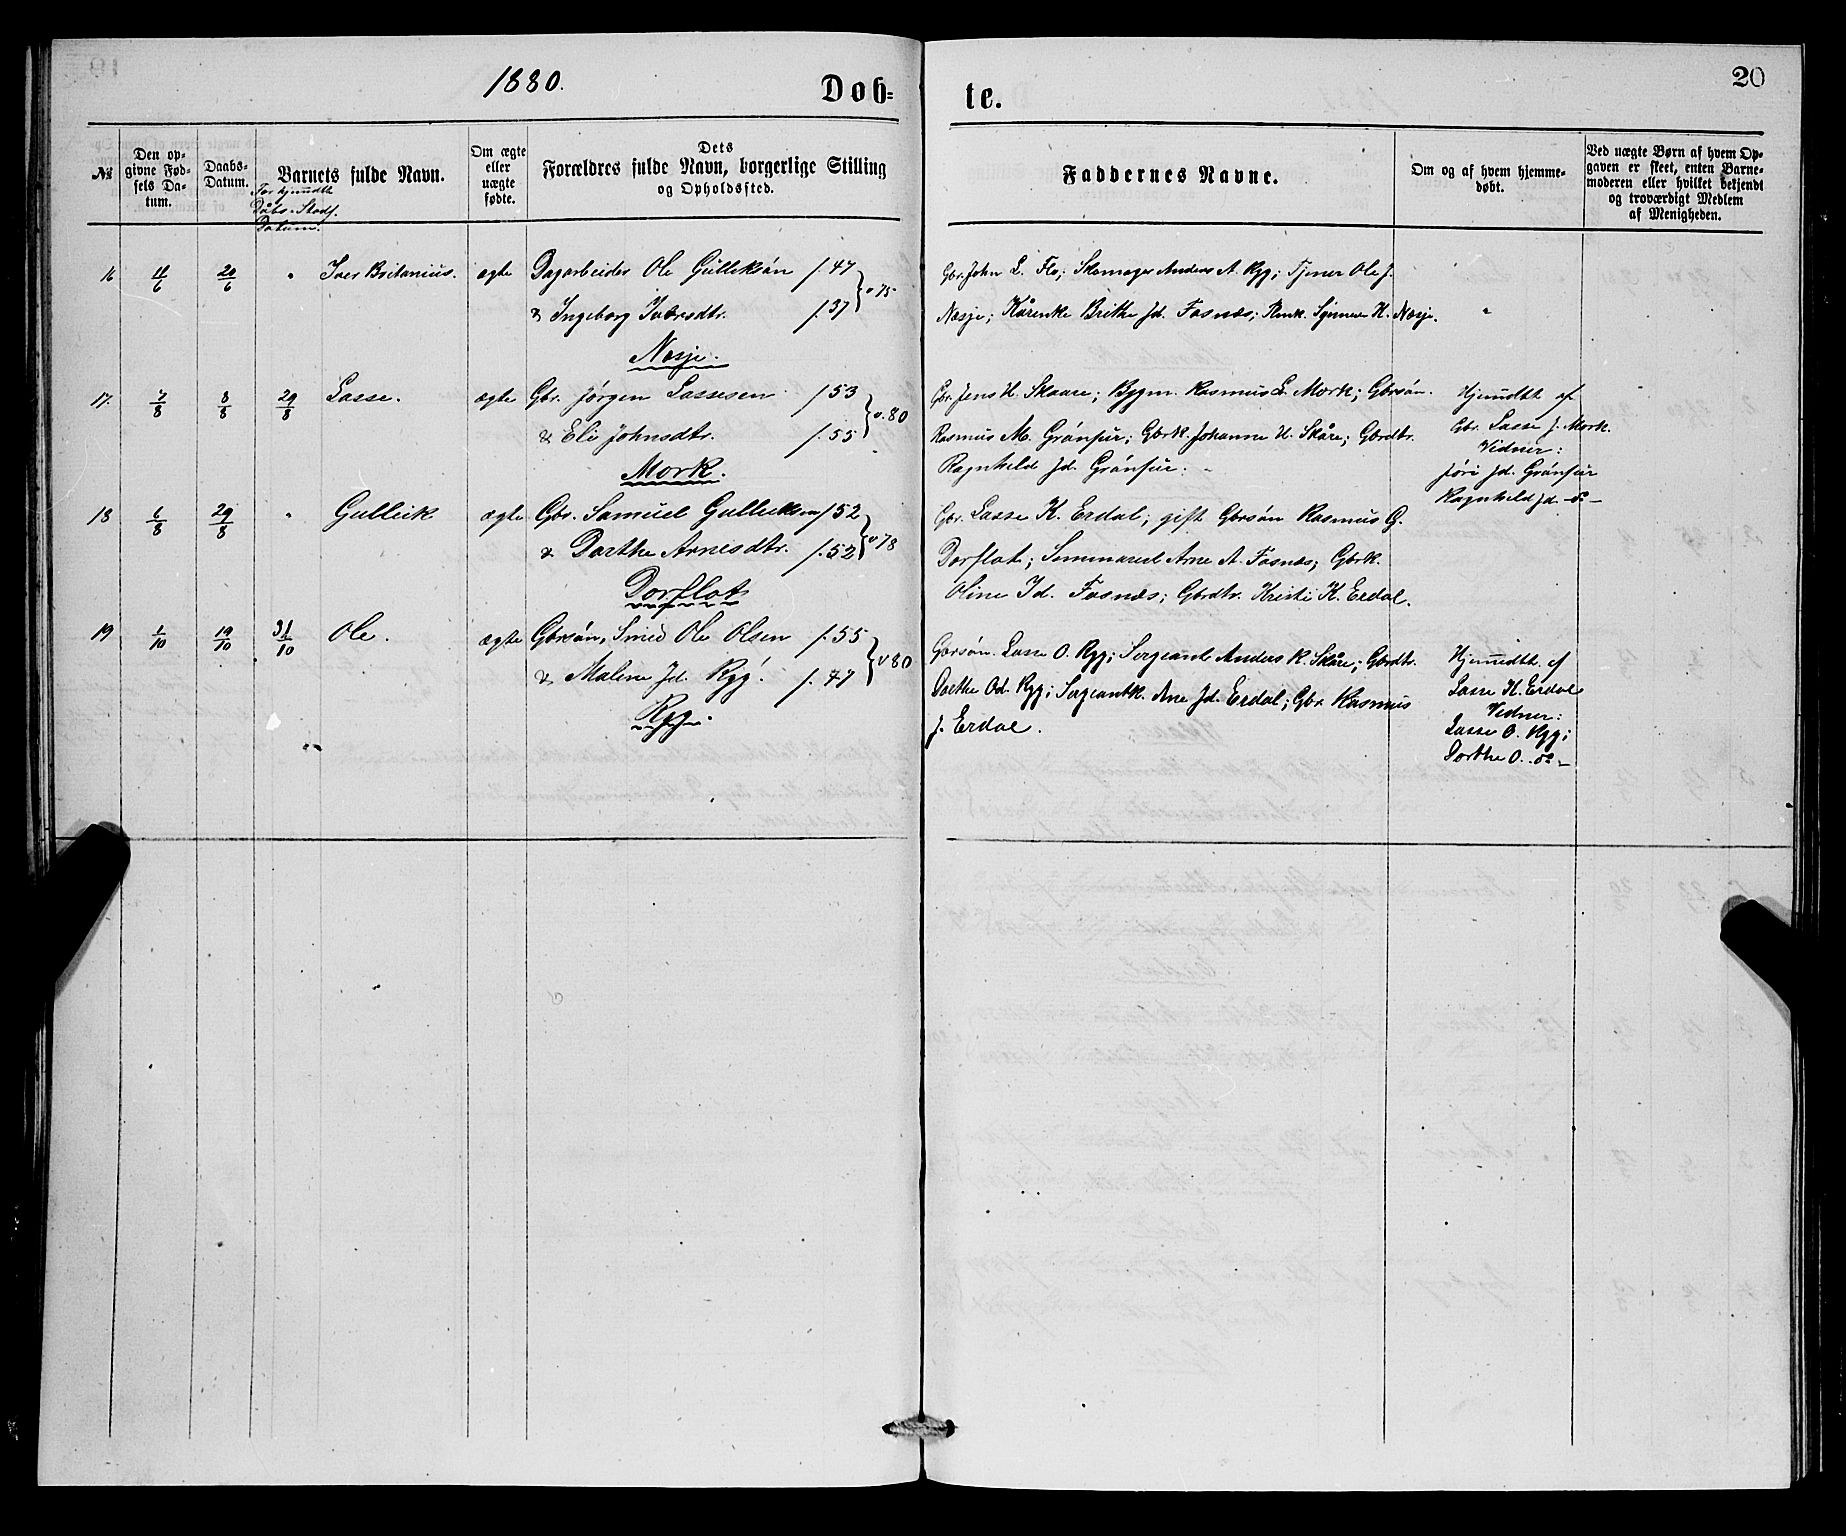 1880.
Døb=
te.
20
№
Den op=
givne Fød=
sels Da=
tum.
Daabs=
Datum.
Barnets fulde Navn.
For hjemdbte
Dåbs-Stadf.
Datum.
Om ægte
eller
uægte
fødte.
Dets
Forældres fulde Navn, borgerlige Stilling
og Opholdssted.
Faddernes Navne.
Om og af hvem hjemme=
døbt.
Ved uægte Børn af hvem Op=
gaven er skeet, enten Barne=
moderen eller hvilket bekjendt
og troværdigt Medlem
af Menigheden.
16 11/6 20/6 " Iver Britanius. ægte Dagarbeider Ole Gulleksøn f. 47
& Ingeborg Iversdtr. f. 37 } v 75
Nesje.
Gbr. John L. Flo; Skomager Anders A. Ryg; Tjener Ole J.
Nesje; Kårenke Brithe Jd. Fosnæs; Synneve H. Nesje. "
17. 7/8 8/8 29/8 Lasse. ægte Gbr. Jørgen Lassesen f 53
& Eli Johnsdtr. f. 55 } v. 80
Mork.
Gbr. Jens H. Skaare; Bygm. Rasmus L. Mork; Gbrsøn.
Rasmus M. Grónfur; Gbrk. Johanne H. Skåre; Gbrdtr.
Ragnhild Jd. Grónfur.
Hjemdbt af
Gbr. Lasse J. Mork.
Vidner:
Jóri Jd. Grónfur
Ragnhild Jd. -do-
18 6/8 29/8 " Gulleik ægte Gbr. Samuel Gulleiksen f 52
& Dorthe Arnesdtr. f. 52 } v 78
Dorflot
Gbr. Lasse K. Erdal; gift Gbrsøn Rasmus G.
Dorflot; Seminarist Arne A. Fosnæs; Gbrk.
Oline Id. Fosnæs; Gbrdtr. Kristi K. Erdal.
19 1/10 19/10 31/10 Ole. ægte Gbrsón, Smed Ole Olsen f. 55
& Malene Jd. Ryg. f. 47 } v 80
Ryg.
Gbrsón. Lasse O. Ryg; Sergeant Anders R. Skåre; Gbrdtr.
Dorthe Od. Ryg; Sergeantk. Ane Jd. Erdal; Gbr Rasmus
J. Erdal.
Hjemdbt. af
Lasse K. Erdal
Vidner:
Lasse O. Ryg;
Dorthe O. -do-